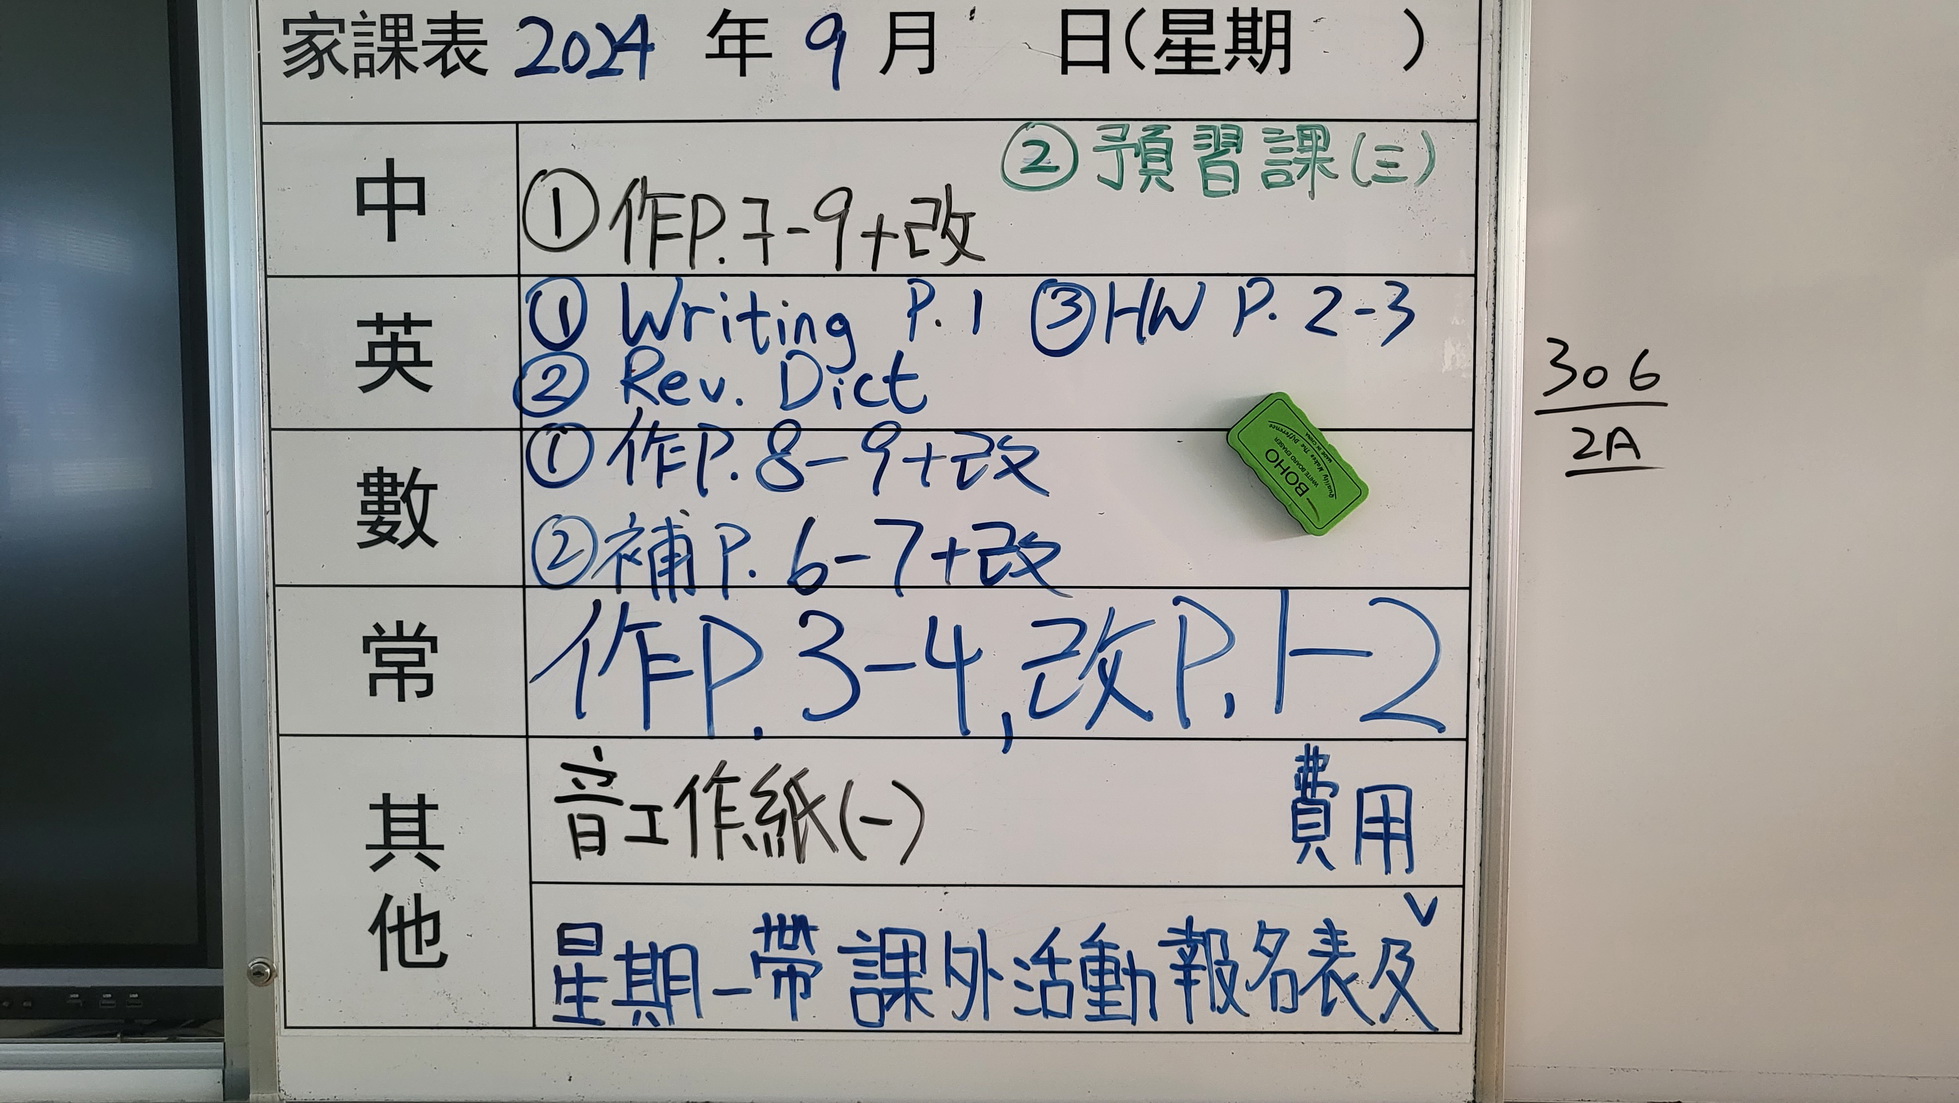 家課表 2024 年 9 月 日(星期 )
中
②預習課(三)
①作P.7-9+改
英
① Writing P.1 ③HW P. 2-3
② Rev. Dict
數
①作P.8-9+改
②補P.6-7+改
常
作P.3-4,改P.1-2
其他
音工作紙(一)
星期一帶課外活動報名表及
費用
BOHO
WHITE BOARD ERASER
Quality Makes The Difference
306
2A